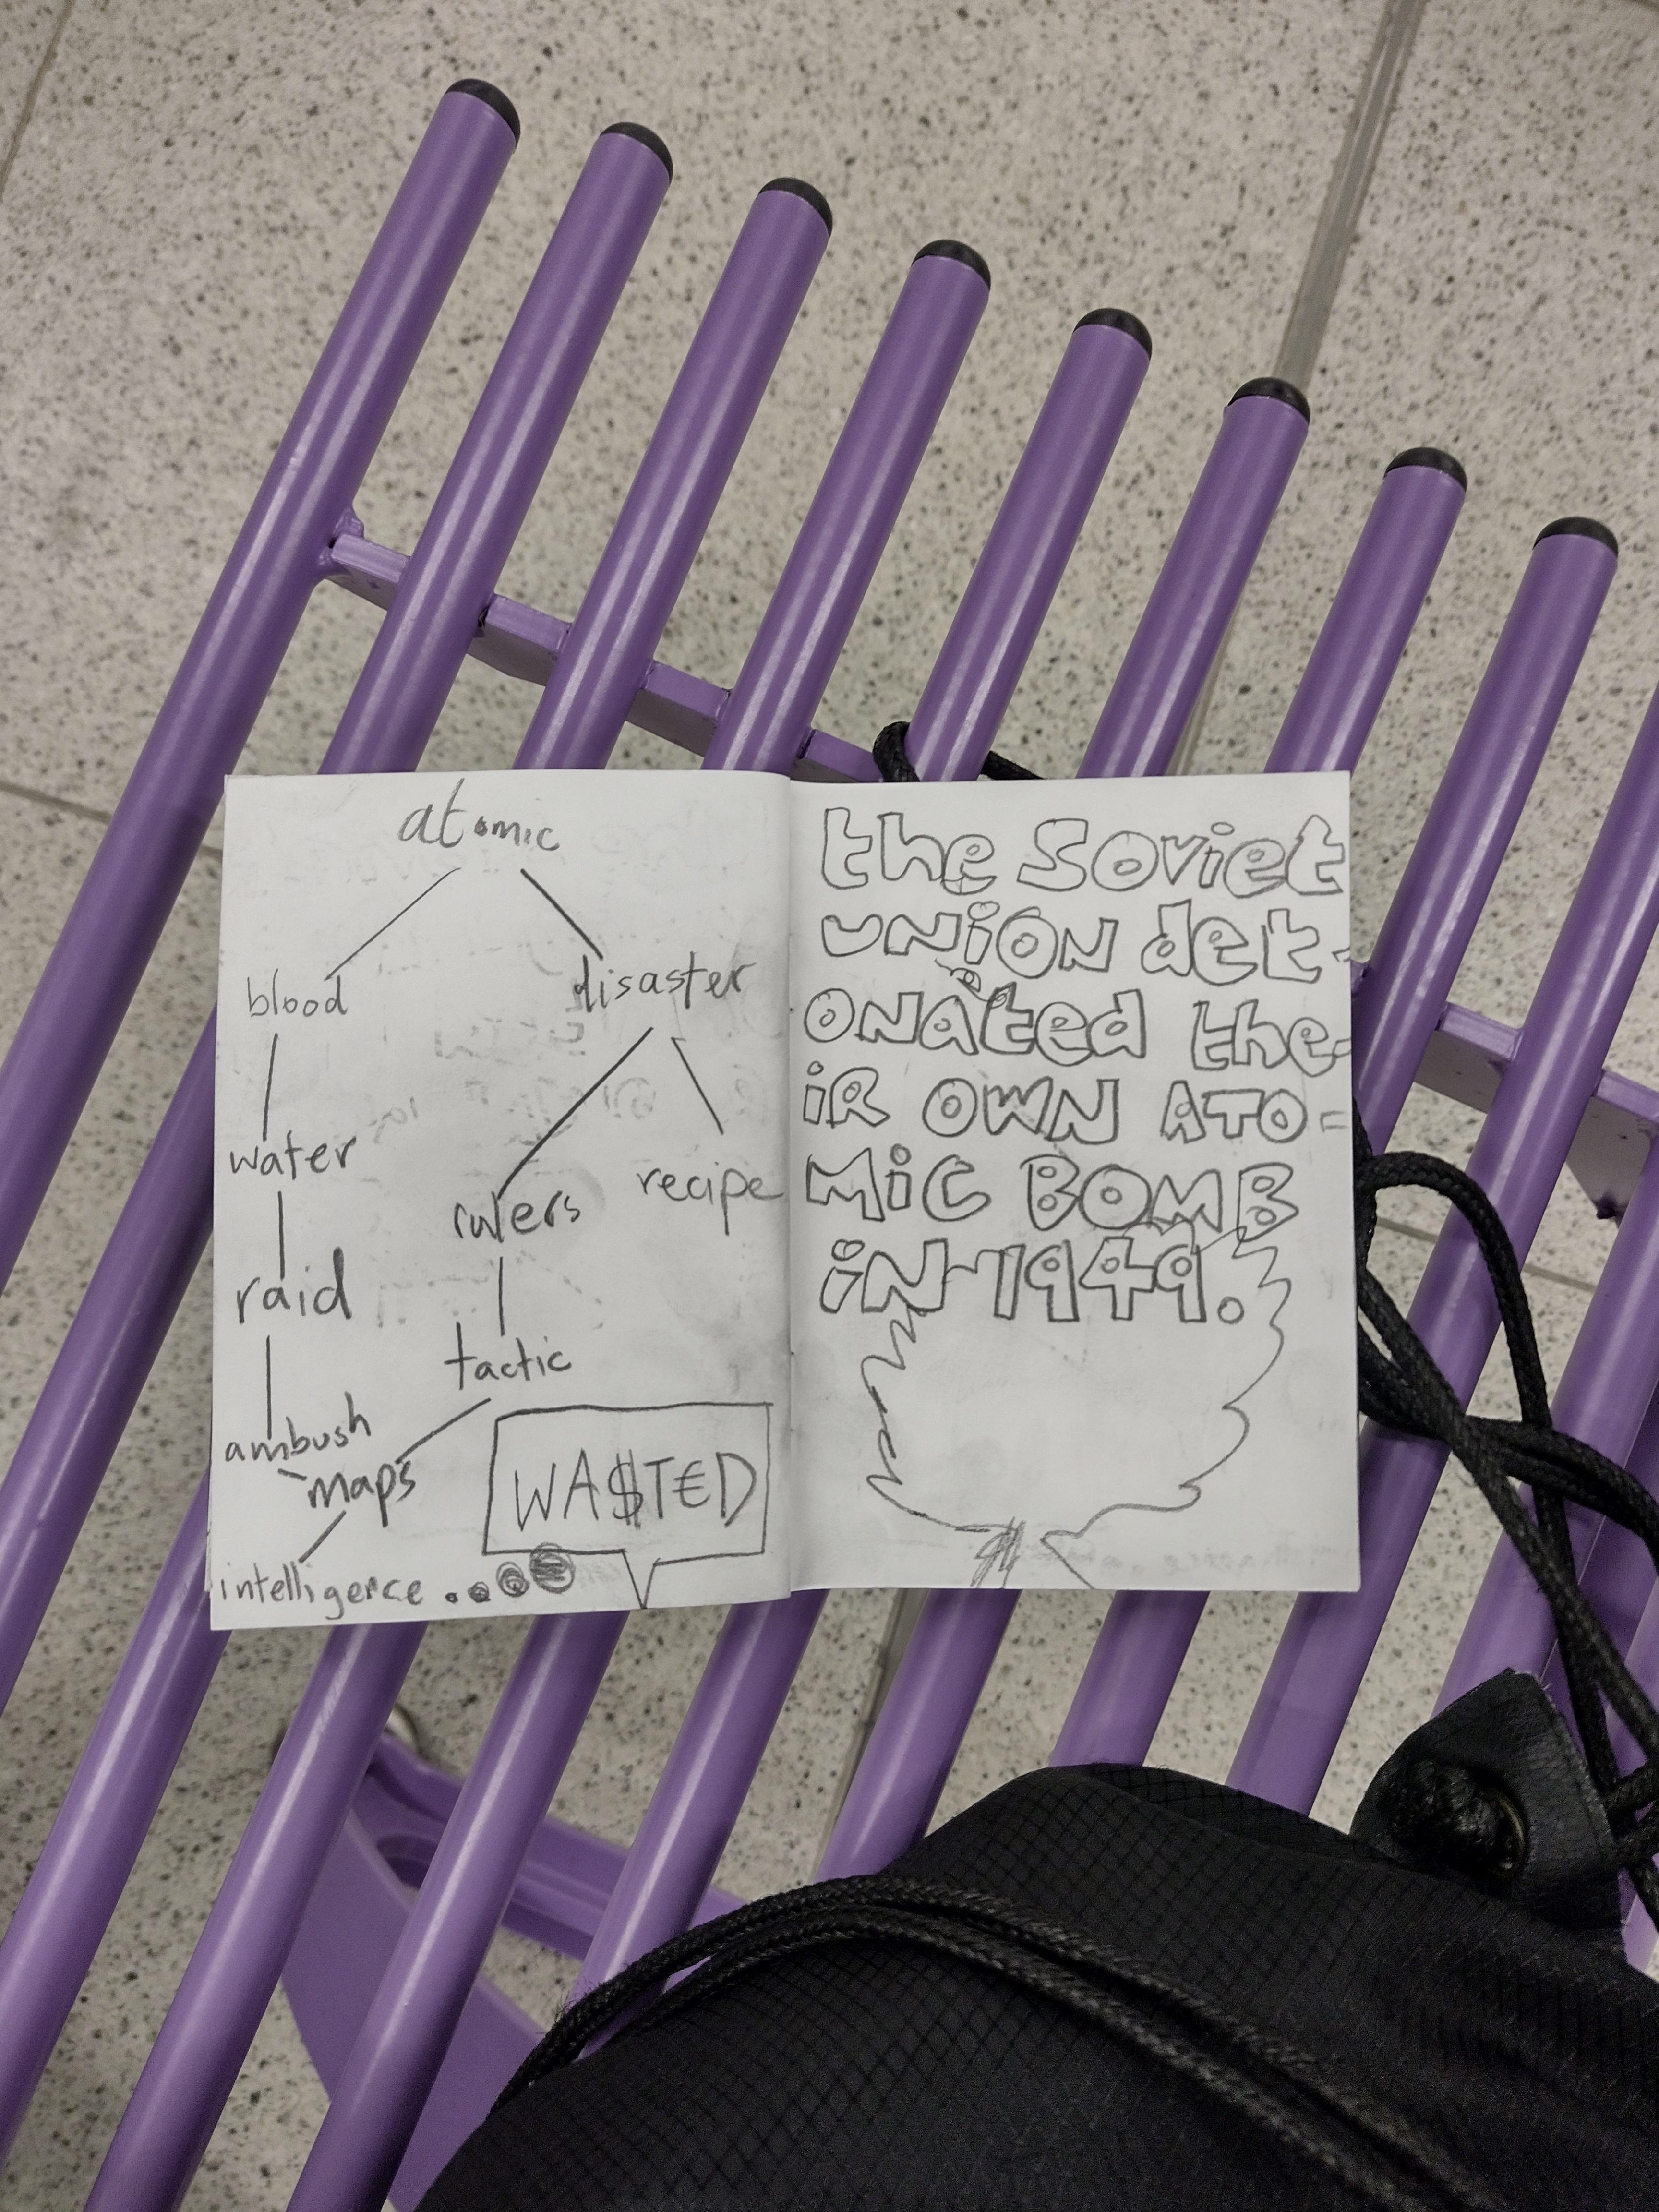 atomic
blood disaster
water
rulers recipe
raid
tactic
ambush
maps
WA$T€D
intelligence...
the Soviet
UNiON det-
ONAted the-
iR OWN ATO-
MiC BOMB
iN 1949.